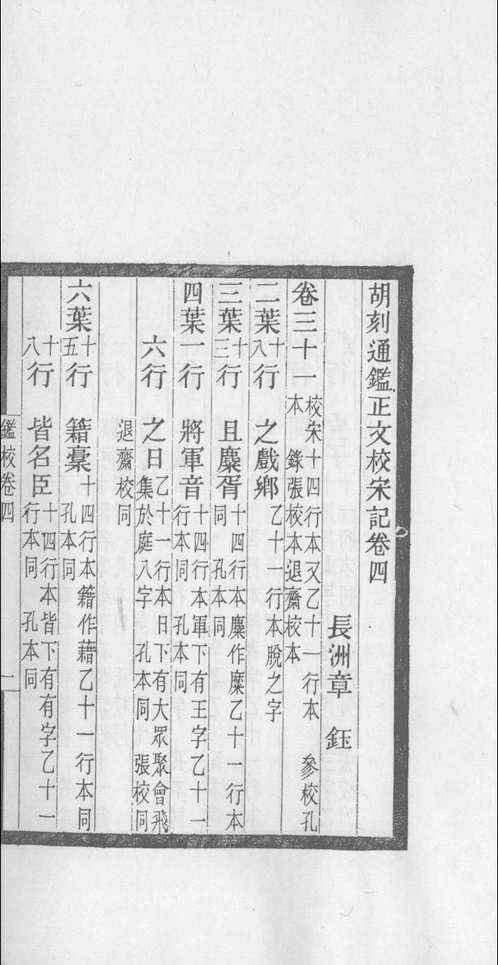 胡刻通鑑正文校宋記卷四
長洲章　鈺
卷三十一　校宋十四行本又乙十一行本　參校孔
本　錄張校本退齋校本
二葉十八行　之戲鄉　乙十一行本脫之字
三葉十三行　且麋胥　十四行本麋作糜乙十一行本
同　孔本同
四葉一行　將軍音　十四行本軍下有王字乙十一
行本同　孔本同
六行　之日　乙十一行本日下有大眾聚會飛
集於庭八字　孔本同　張校同
退齋校同
六葉十五行　籍稾　十四行本籍作藉乙十一行本同
孔本同
十八行　皆名臣　十四行本皆下有有字乙十一
行本同　孔本同
鑑校卷四
一